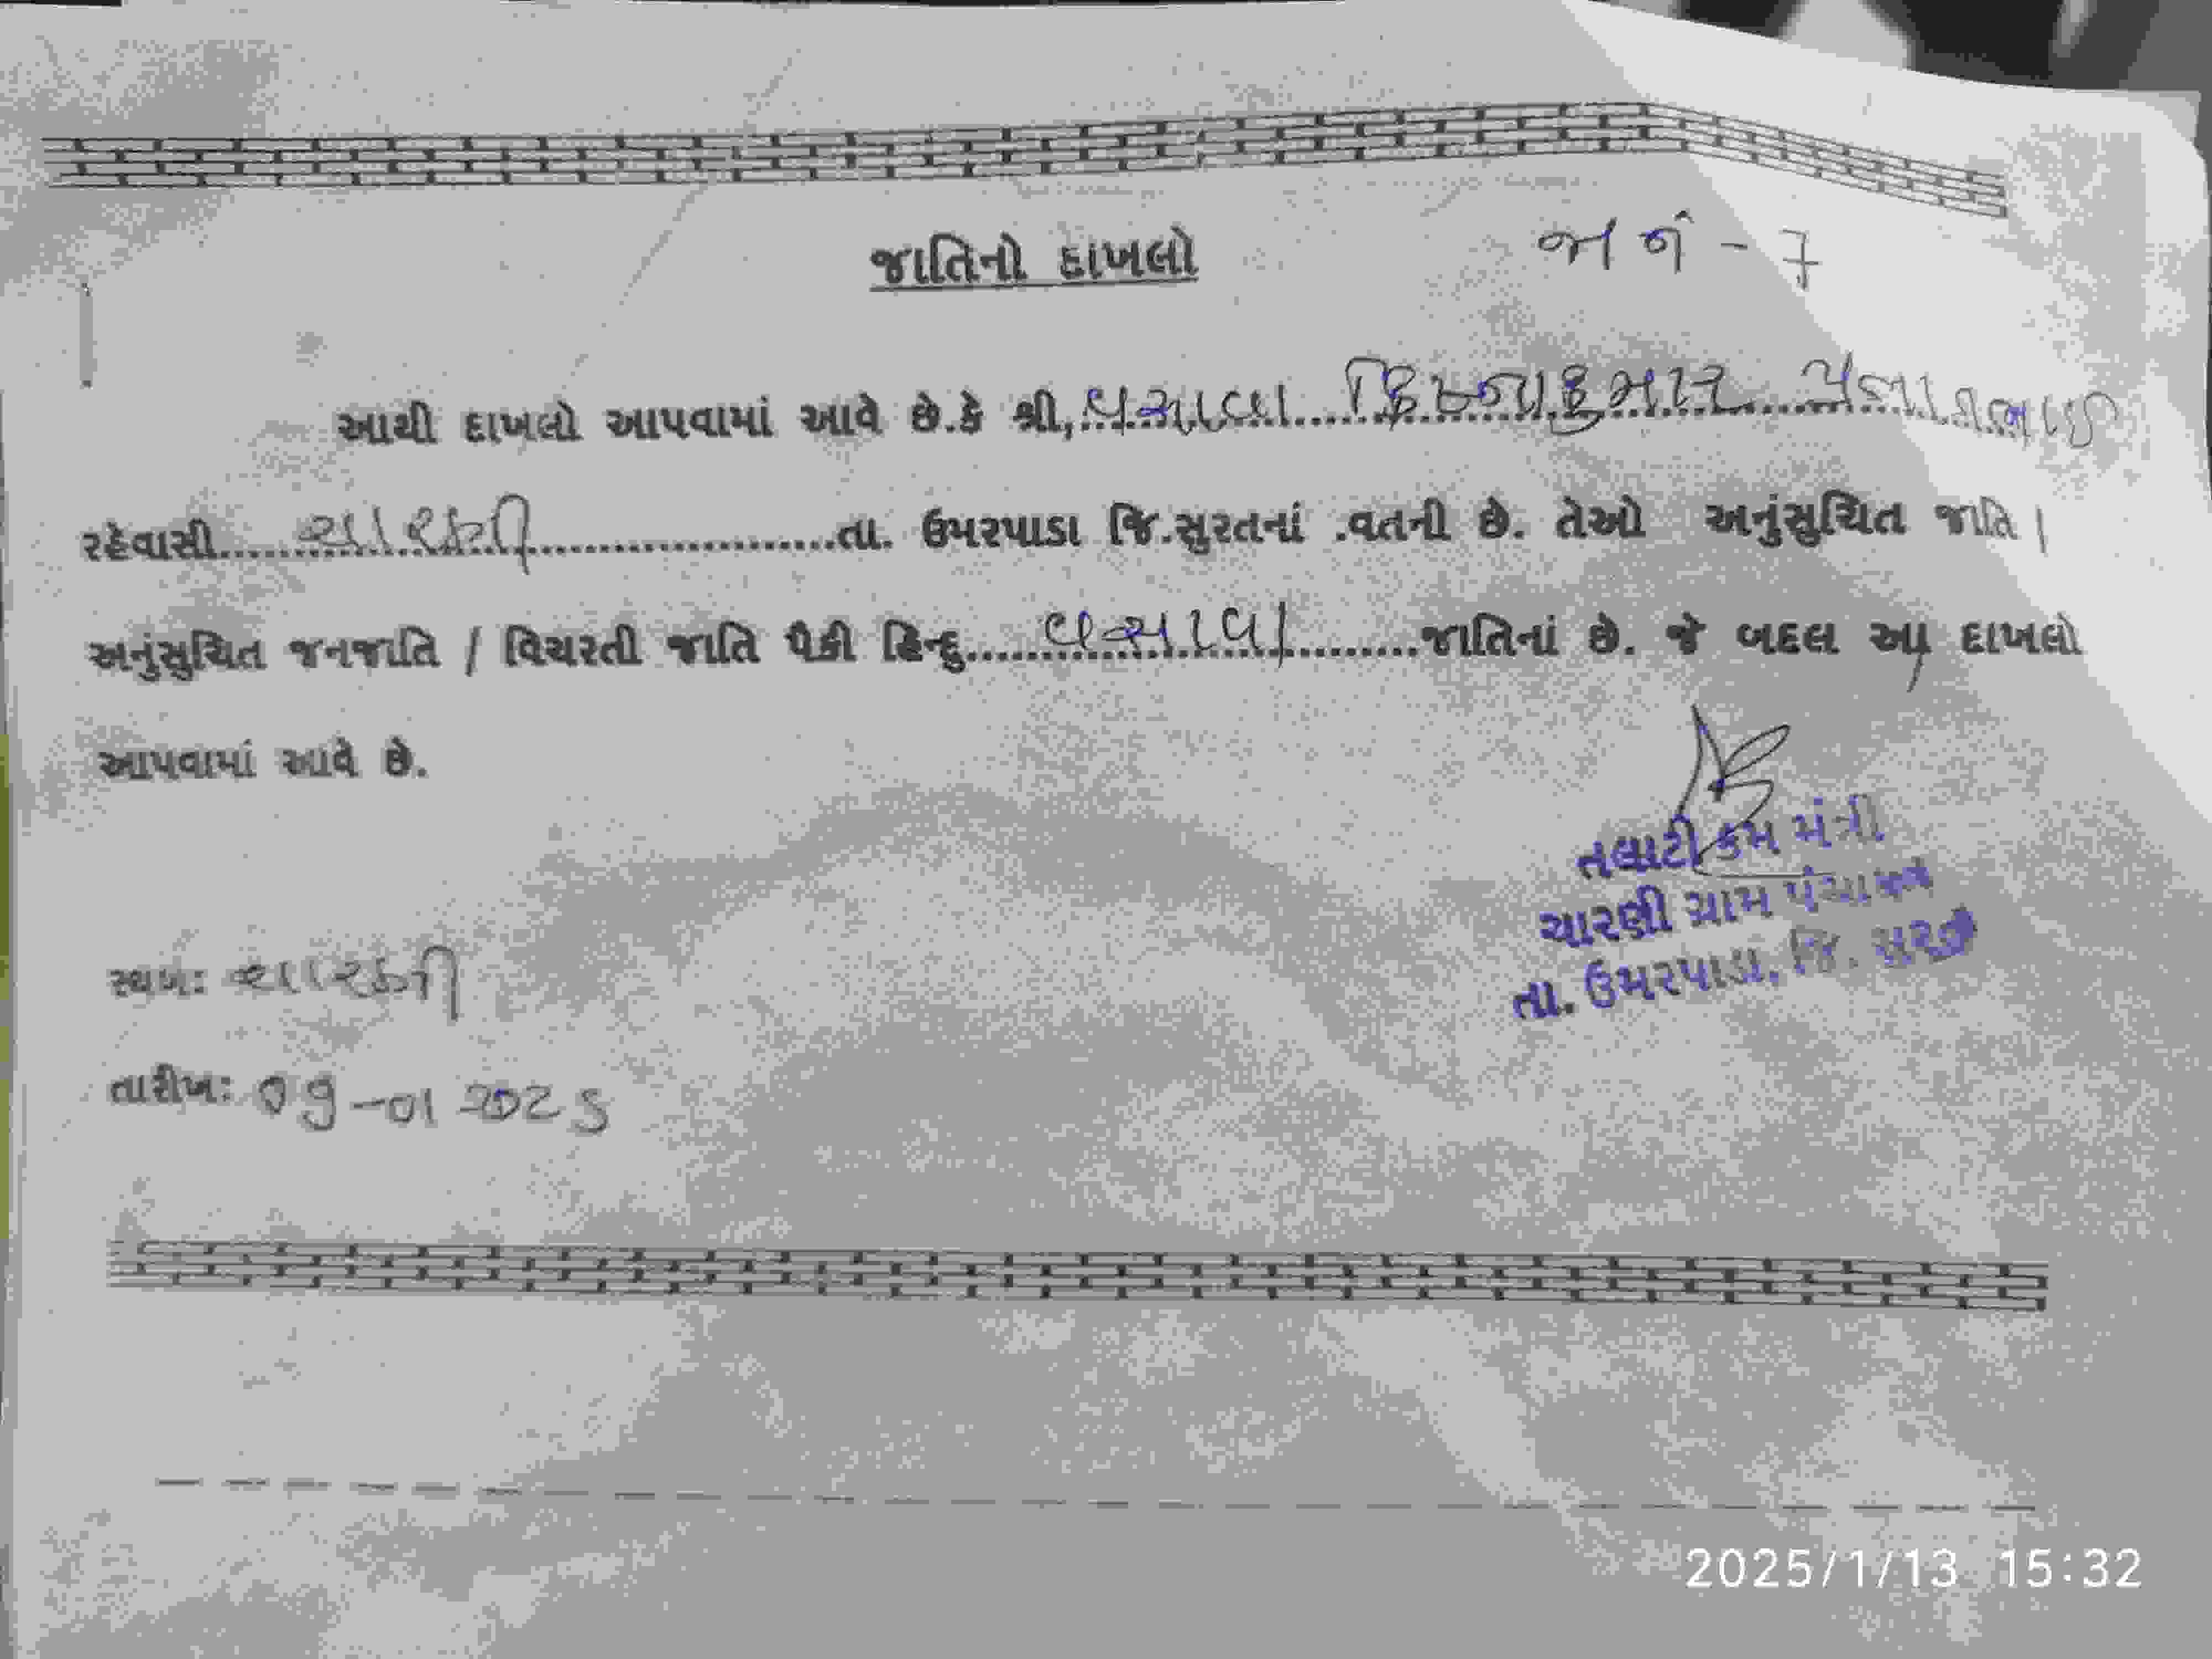 જાતિનો દાખલો
આથી દાખલો આપવામાં આવે છે.કે શ્રી, વસાવા
રહેવાસી ચારણી તા. ઉમરપાડા જિ.સુરતનાં .વતની છે. તેઓ અનુંસુચિત જાતિ /
અનુંસુચિત જનજાતિ / વિચરતી જાતિ પૈકી હિન્દુ વસાવા જાતિનાં છે. જે બદલ આ દાખલો
આપવામાં આવે છે.
તલાટી કમ મંત્રી
ચારણી ગ્રામ પંચાયત
તા. ઉમરપાડા, જિ. સુરત
સ્થળ: ચારણી
તારીખ:
2025/1/13 15:32